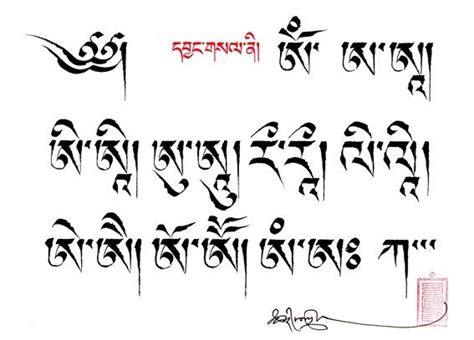 ༄༅། དབྱང་གསལ་ནི། ཨོཾ་ ཨ་ཨཱ།
ཨི་ཨཱི། ཨུ་ཨཱུ། རྀ་རཱྀ། ལྀ་ལཱྀ།
ཨེ་ཨཻ། ཨོ་ཨཽ། ཨཾ་ཨཿ ཀ་་་